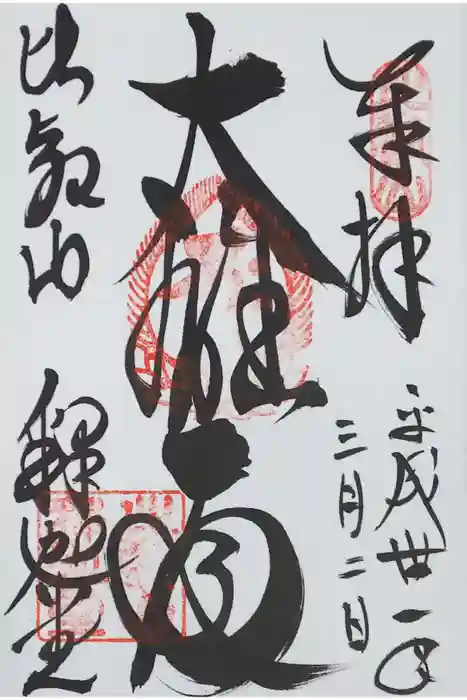 奉拝
平成丗一年
三月二日
大雄殿
比叡山
釋迦堂